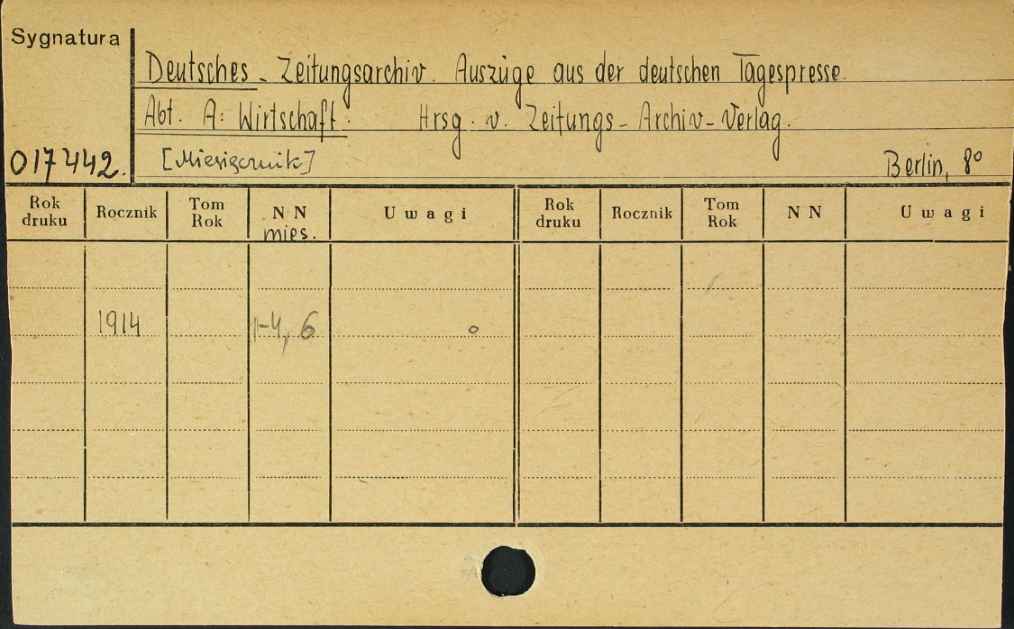 Sygnatura
Deutsches - Zeitungsarchiv. Auszüge aus der deutschen Tagespresse.
Abt. A: Wirtschaft. Hrsg. v. Zeitungs-Archiv-Verlag.
017442. [Miesięcznik] Berlin, 8°
Rok druku Rocznik Tom Rok NN mies. Uwagi Rok druku Rocznik Tom Rok NN Uwagi
1914 1-4, 6